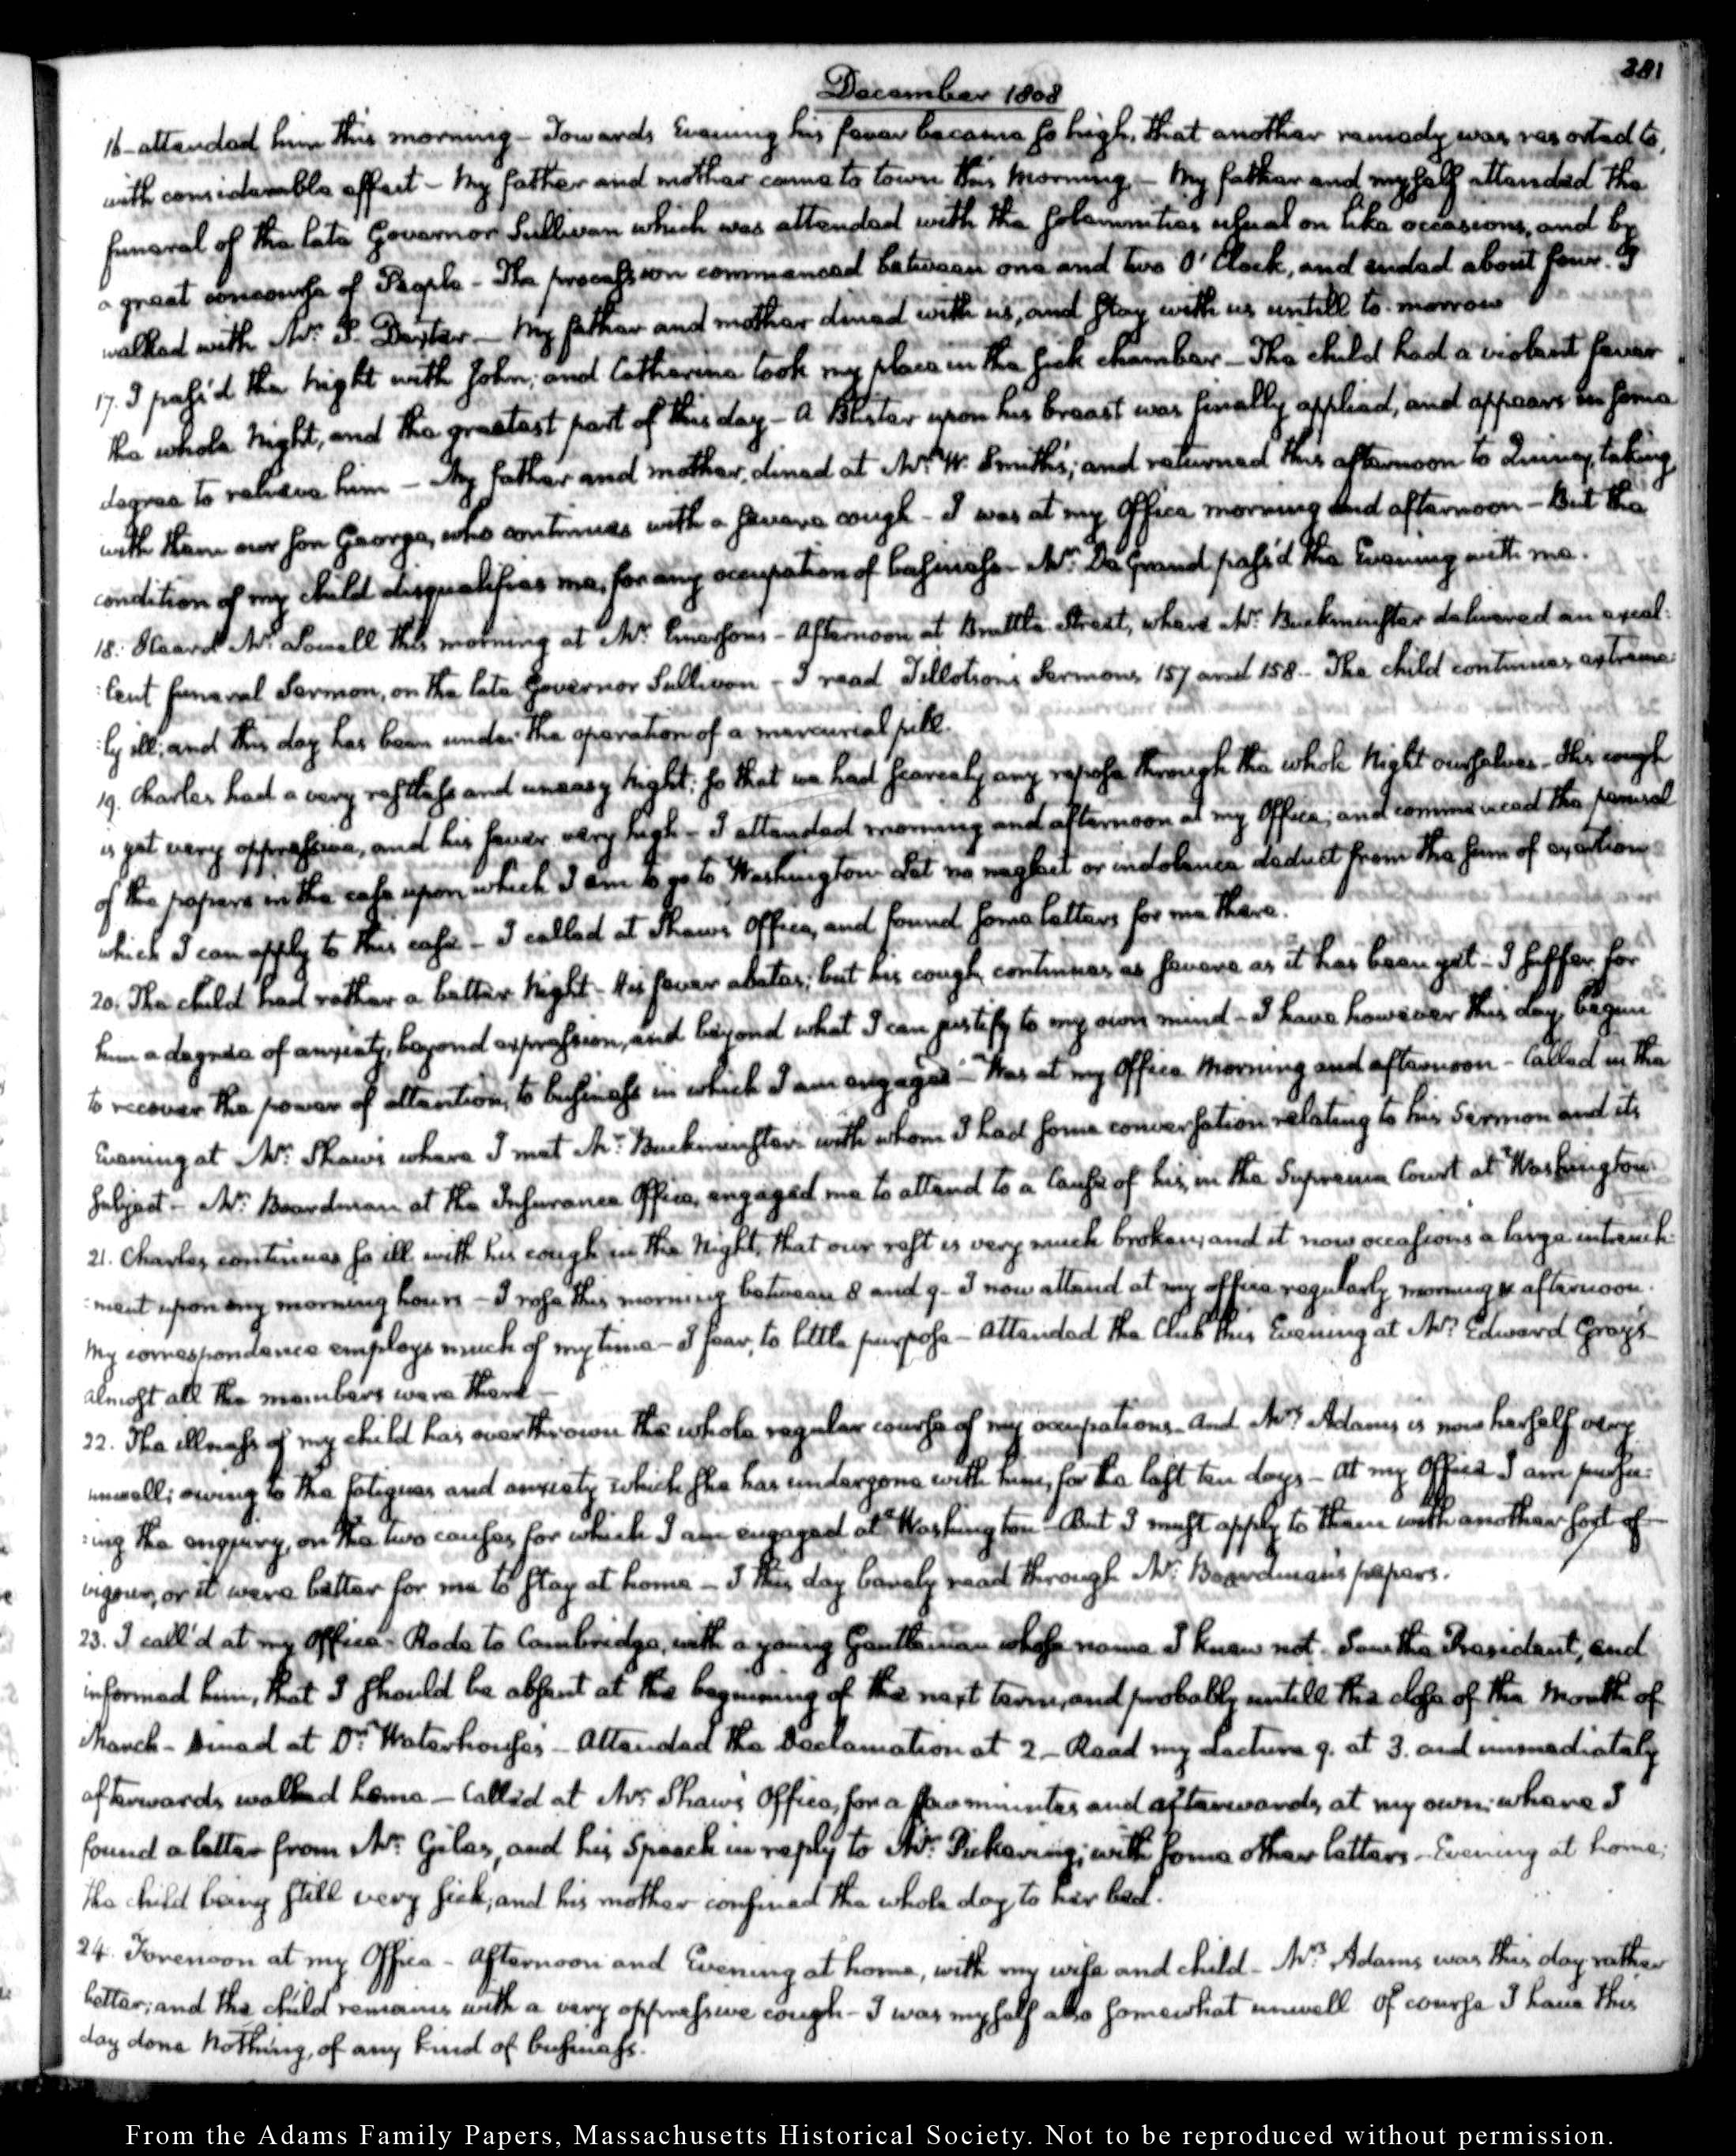 381
December 1808
16- attended him this morning - Towards Evening his fever became so high, that another remedy was resorted to,
with considerable effect - My father and mother came to town this Morning - My father and myself attended the
funeral of the late Governor Sullivan which was attended with the solemnities usual on like occasions, and by
a great concourse of People - The procession commenced between one and two O'Clock, and ended about four. I
walked with Mr. S. Dexter - My father and mother dined with us, and stay with us untill to-morrow
17. I pass'd the Night with John; and Catherine took my place in the sick chamber - The child had a violent fever
the whole Night, and the greatest part of this day - A Blister upon his breast was finally applied, and appears in some
degree to relieve him - My father and mother, dined at Mr. W. Smith's; and returned this afternoon to Quincy, taking
with them our son George, who continues with a severe cough - I was at my Office morning and afternoon - But the
condition of my child disqualifies me, for any occupation of business - Mr. De Grand pass'd the Evening with me.
18. Heard Mr. Lowell this morning at Mr. Emerson's - Afternoon at Brattle-Street, where Mr. Buckminster delivered an excel:
:lent funeral Sermon, on the late Governor Sullivan - I read Tillotson's Sermons 157 and 158 - The child continues extreme:
:ly ill; and this day has been under the operation of a mercurial pill.
19. Charles had a very restless and uneasy Night; so that we had scarcely any repose through the whole Night ourselves - His cough
is yet very oppressive, and his fever very high - I attended morning and afternoon at my Office; and commenced the perusal
of the papers in the case upon which I am to go to Washington - Let no neglect or indolence deduct from the sum of exertion
which I can apply to this case - I called at Shaw's Office, and found some letters for me there.
20. The child had rather a better Night - His fever abates; but his cough continues as severe as it has been yet - I suffer for
him a degree of anxiety, beyond expression, and beyond what I can justify to my own mind - I have however this day, begun
to recover the power of attention, to business in which I am engaged - Was at my Office Morning and afternoon - Called in the
Evening at Mr. Shaw's where I met Mr. Buckminster with whom I had some conversation relating to his Sermon and its
subject - Mr. Boardman at the Insurance Office, engaged me to attend to a Cause of his, in the Supreme Court at Washington.
21. Charles continues so ill with his cough in the Night, that our rest is very much broken; and it now occasions a large intrench:
:ment upon my morning hours - I rose this morning between 8 and 9 - I now attend at my office regularly morning & afternoon.
My correspondence employs much of my time - I fear, to little purpose - Attended the Club this Evening at Mr. Edward Gray's
almost all the members were there -
22. The illness of my child has overthrown the whole regular course of my occupations - And Mrs. Adams is now herself very
unwell; owing to the fatigues and anxiety which she has undergone with him, for the last ten days - At my Office I am pursu:
:ing the enquiry, on the two causes for which I am engaged at Washington - But I must apply to them with another sort of
vigour, or it were better for me to stay at home - I this day barely read through Mr. Boardman's papers.
23. I call'd at my Office - Rode to Cambridge, with a young Gentleman whose name I knew not - Saw the President, and
informed him, that I should be absent at the beginning of the next term, and probably untill the close of the Month of
March - Dined at Dr. Waterhouse's - Attended the Declamation at 2 - Read my Lecture 9. at 3. and immediately
afterwards walked home - Called at Mr. Shaw's Office, for a few minutes and afterwards, at my own; where I
found a letter from Mr. Giles, and his Speech in reply to Mr. Pickering; with some other letters - Evening at home;
the child being still very sick; and his mother confined the whole day to her bed.
24. Forenoon at my Office - Afternoon and Evening at home, with my wife and child - Mrs. Adams was this day rather
better; and the child remains with a very oppressive cough - I was myself also somewhat unwell Of course I have this
day done Nothing, of any kind of business.
From the Adams Family Papers, Massachusetts Historical Society. Not to be reproduced without permission.